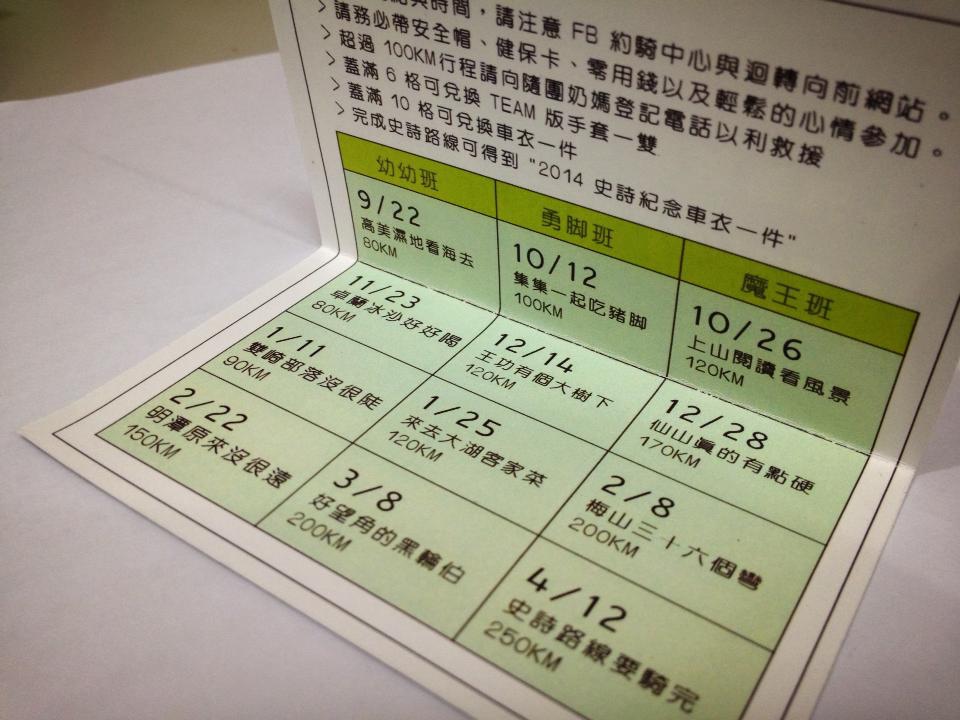 時間，請注意 FB 約騎中心與迴轉向前網站。
> 請務必帶安全帽、健保卡、零用錢以及輕鬆的心情參加。
> 超過 100KM行程請向隨團奶媽登記電話以利救援
> 蓋滿 6 格可兌換 TEAM 版手套一雙
> 蓋滿 10 格可兌換車衣一件
> 完成史詩路線可得到 "2014 史詩紀念車衣一件"
幼幼班
勇腳班
魔王班
9/22
高美濕地看海去
80KM
10/12
集集一起吃豬腳
100KM
10/26
上山閱讀看風景
120KM
11/23
卓蘭冰沙好好喝
80KM
12/14
王功有個大樹下
120KM
12/28
仙山真的有點硬
170KM
1/11
雙崎部落沒很陡
90KM
1/25
來去大湖客家菜
120KM
2/8
梅山三十六個彎
200KM
2/22
明潭原來沒很遠
150KM
3/8
好望角的黑輪伯
200KM
4/12
史詩路線要騎完
250KM